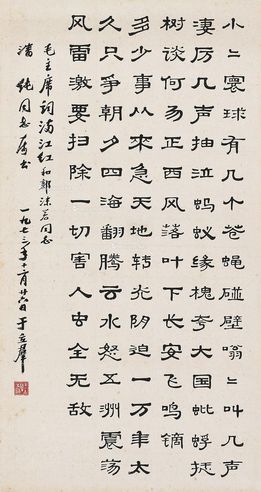 小〻寰球有几个苍蝇碰壁嗡〻叫几声
凄厉几声抽泣蚂蚁缘槐夸大国蚍蜉撼
树谈何易正西风落叶下长安飞鸣镝
多少事从来急天地转光阴迫一万年太
久只争朝夕四海翻腾云水怒五洲震荡
风雷激要扫除一切害人虫全无敌
毛主席词满江红和郭沫若同志
潘纯同志属书 一九七三年十二月廿六日 于立群